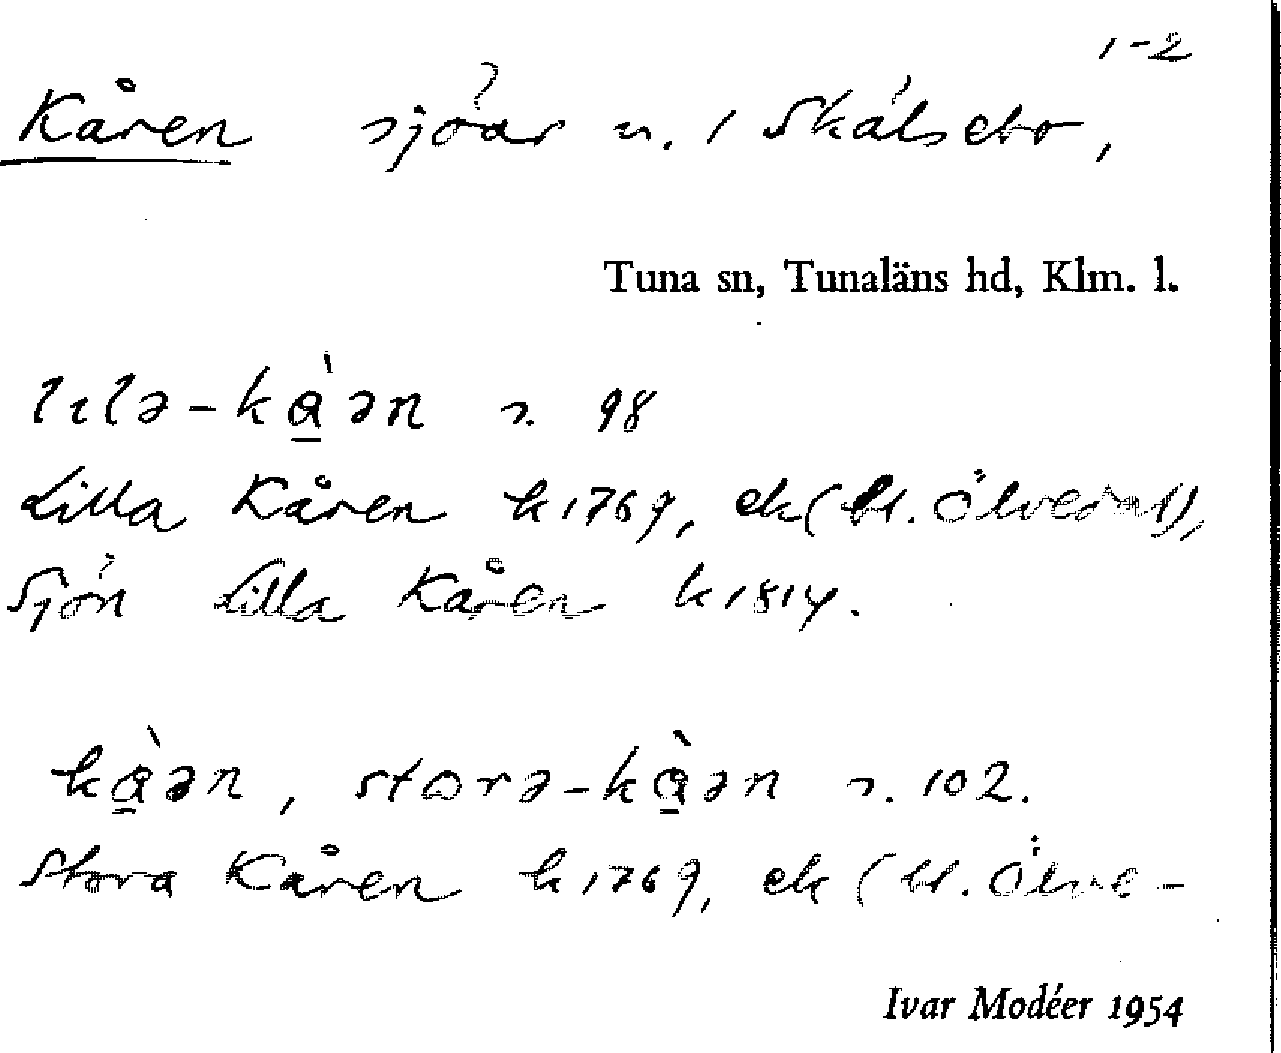 1-2
Kåren sjöar n. / Skälsebo,
Tuna sn, Tunaläns hd, Klm. l.
lɩlə-kàən n. 98
Lilla Kåren k 1769, ek (bl.
Sjön Lilla Kåren k 1814.
kàən, storə-kàən n. 102.
Stora Kåren k 1769, ek (bl. Ölve-
Ivar Modéer 1954